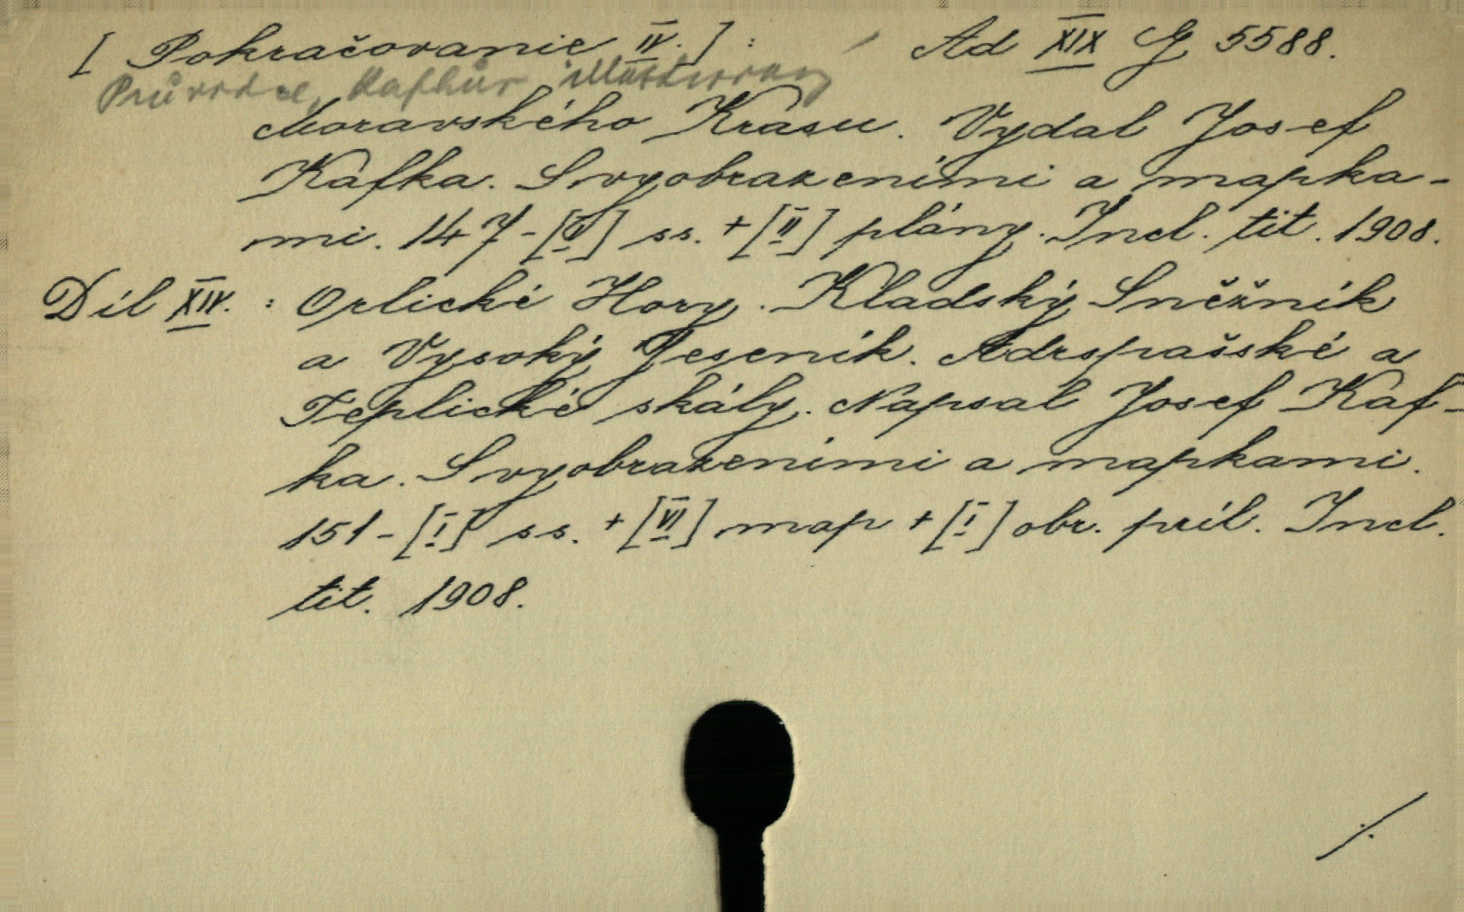 [ Pokračovanie IV. ] : Ad XIX G 5588.
Průvodce, Kafkův illustrovaný
Moravského Krasu. Vydal Josef
Kafka. S vyobrazeními a mapka-
mi. 147-[V] ss. + [II] plány. Incl. tit. 1908.
Díl XIV. : Orlické Hory. Kladský Sněžník
a Vysoký Jeseník. Adrspašské a
Teplické skály. Napsal Josef Kaf-
ka. S vyobrazeními a mapkami.
151-[I] ss. + [VI] map + [I] obr. príl. Incl.
tit. 1908.
./.